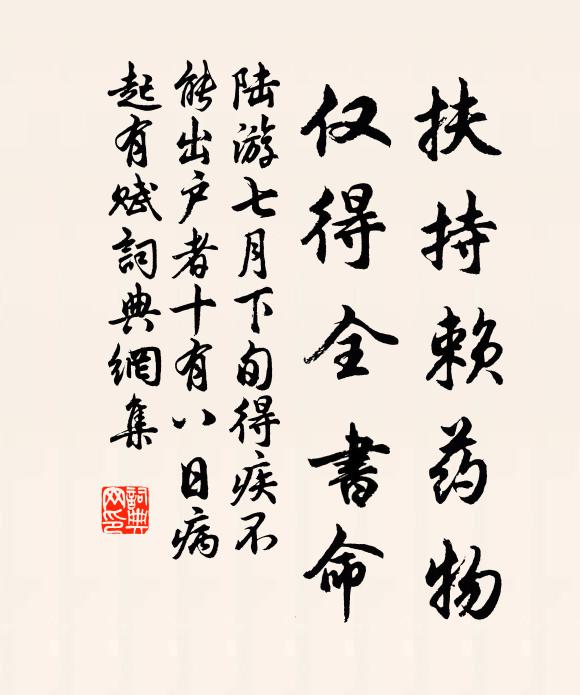 扶持赖药物
仅得全書命
陆游七月下旬得疾不
能出户者十有八日病
起有赋詞典網集
詞典
网印